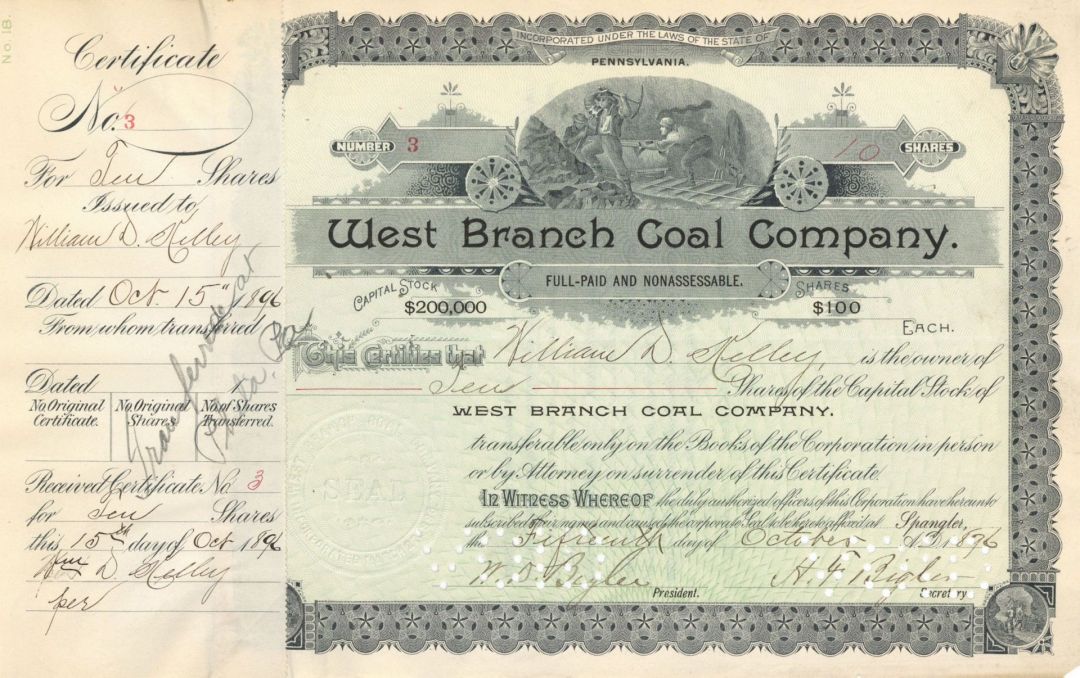 No. 1B.
Certificate
No. 3
For Ten Shares
Issued to
William D. Kelley
Dated Oct. 15" 1896
From whom transferred
Dated
No. Original Certificate. No. Original Shares No. of Shares Transferred.
Received Certificate No 3
for Ten Shares
this 15th day of Oct 1896
Wm D. Kelley
per
INCORPORATED UNDER THE LAWS OF THE STATE OF
PENNSYLVANIA.
NUMBER 3
10 SHARES
West Branch Coal Company.
FULL-PAID AND NONASSESSABLE.
CAPITAL STOCK
$200,000
SHARES
$100
EACH.
This Certifies that William D. Kelley, is the owner of
Ten Shares of the Capital Stock of
WEST BRANCH COAL COMPANY.
transferable only on the Books of the Corporation in person
or by Attorney on surrender of this Certificate.
IN WITNESS WHEREOF the duly authorized officers of this Corporation have hereunto
subscribed their names and caused the corporate Seal to be hereto affixed at Spangler,
this Fifteenth day of October A.D. 1896
W. D. Bigler
President.
A. F. Bigler
Secretary.
SEAL